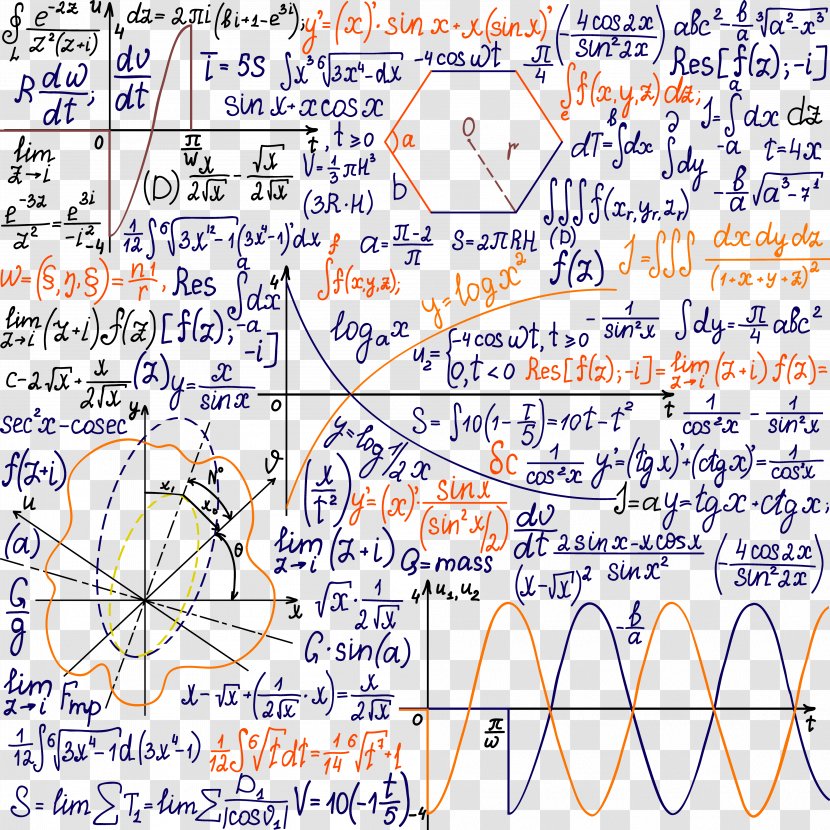 ∮_L e^{-2z} / z²(z+i)
u 4
dz = 2πi(bi+1-e^{3i});
y' = (x)'· sin x + x(sin x)'
(-4cos2x / sin²2x)
abc² - b/a ∛(a²-x³)
R dw/dt;
dv/dt
T = 5S
∫x³ ⁶√(3x⁴-dx)
-4cos wt
π/4
Res[f(z); -i]
sin x + x cos x
∫_e f(x,y,z) dz;
J = ∫_{-a}^{a} dx dz
0 π/w t
, t ≥ 0
a
O
r
dT = ∫^b dx
∫^∂ dy
t = 4x
lim_{z→i}
(D) x / 2√x - √x / 2√x
V = 1/3 πH³
b
(3R·H)
∫∫∫f(x_r, y_r, z_r)
-b/a √(a³-7¹)
e^{-3z} / z² = e^{3i} / -i²
-4
1/12 ∫⁶√(3x¹²-1)(3x⁴-1)'dx
a = π-2 / π
S = 2πRH
(D)
f(z)
J = ∫∫∫ dx dy dz / (1+x+y+z)²
W = (§,η,§) = n1 / r,
Res
∫^a_{-a} dx
4
∫^f f(x,y,z);
y = log x²
lim_{z→i} (z+i) f(z) [f(z); -i]
log_a x
u₂ = {-4cos wt, t ≥ 0
0, t < 0
- 1 / sin²x
∫dy = π/4 abc²
Res[f(z); -i] = lim_{z→i} (z+i) f(z) =
c-2√x + x / 2√x
(z)
y = x / sin x
0 t
S = ∫10(1- t/5) = 10t - t²
1 / cos²x - 1 / sin²x
sec²x - cosec
y
y = log 1/2 x
δc 1 / cos²x
y' = (tg x)' + (ctg x)' = 1 / cos²x
f(z+i)
x₁ N° x₀ ϑ
(x / t²)
y' = (x)'· sin x / (sin² x/2)
J = a y = tg x + ctg x;
u
(a)
θ
lim_{z→i} (z+i)
Q = mass
dv/dt
2sin x - x cos x / sin x²
(-4cos2x / sin²2x)
(x-√x)²
G/g
x
√x · 1 / 2√x
4 u₁, u₂
-b/a
G·sin(a)
lim_{z→i} F_mp
x - √x + (1 / 2√x · x) = x / 2√x
0 π/w t
1/12 ∫⁶√(3x⁴-1) d(3x⁴-1)
1/12 ∫⁶√t dt = 1/14 ⁶√t⁷ + 1
S = lim ∑ T₁ = lim ∑ D₁ / |cosϑ₁|
V = 10(-1 t/5)
-4